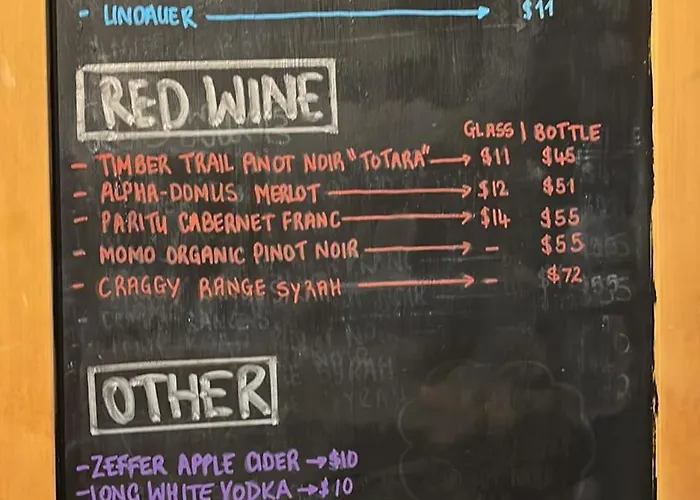 - LINDAUER → $11
RED WINE
GLASS | BOTTLE
- TIMBER TRAIL PINOT NOIR "TOTARA" → $11 $45
- ALPHA-DOMUS MERLOT → $12 $51
- PARITU CABERNET FRANC → $14 $55
- MOMO ORGANIC PINOT NOIR → - $55
- CRAGGY RANGE SYRAH → - $72
OTHER
- ZEFFER APPLE CIDER → $10
- LONG WHITE VODKA → $10